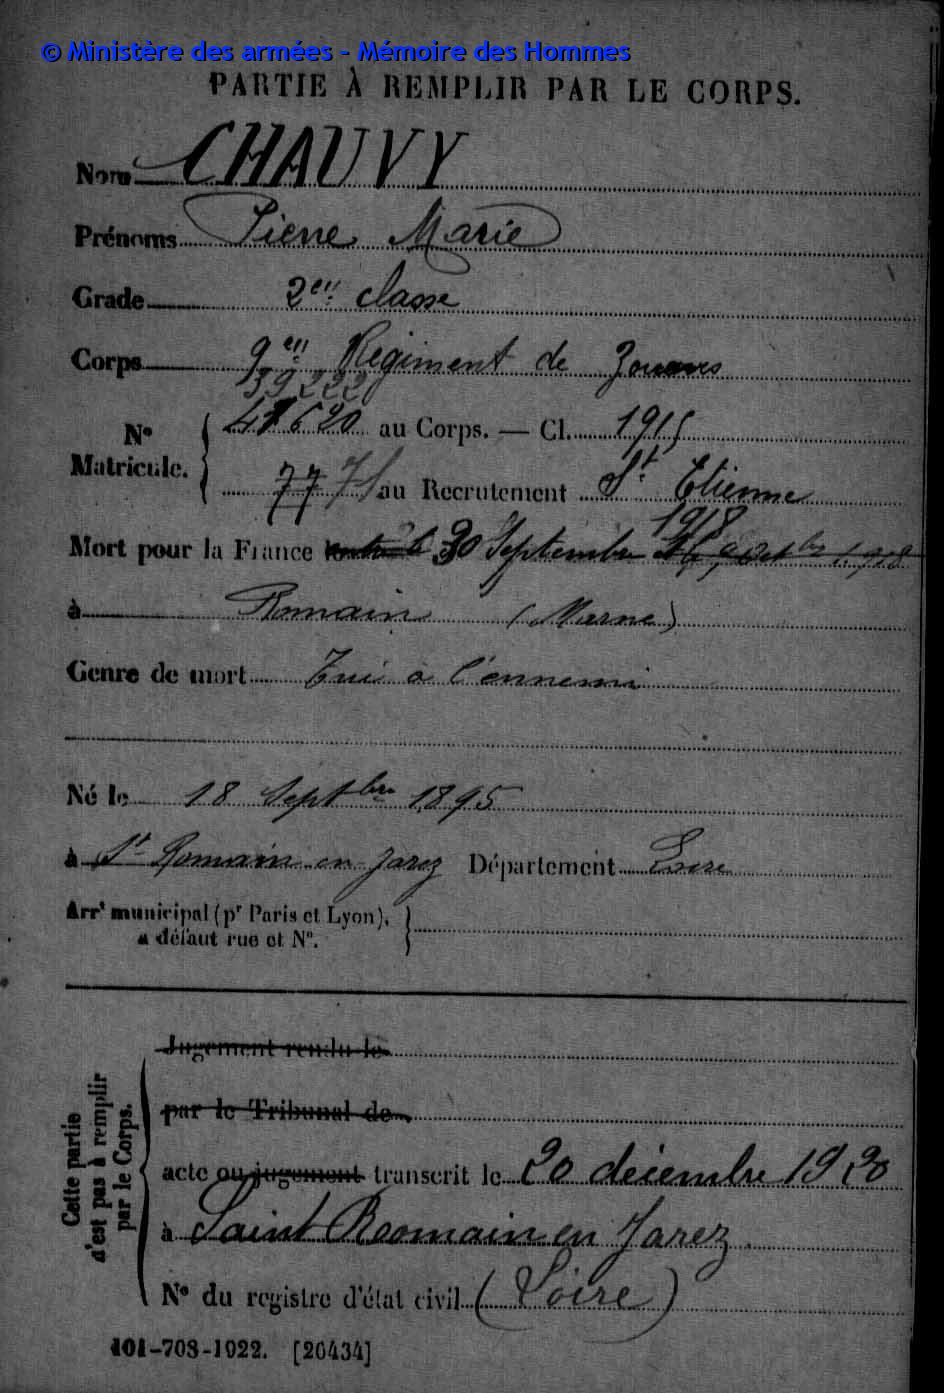 © Ministère des armées - Mémoire des Hommes
PARTIE À REMPLIR PAR LE CORPS.
Nom CHAUVY
Prénoms Pierre Marie
Grade 2e classe
Corps 9e Régiment de Zouaves
39222
Nº Matricule. 41620 au Corps. — Cl. 1915
77 71 au Recrutement St Etienne
1918
Mort pour la France le 30 Septembre 9 Octbre 1918
à Romain (Marne)
Genre de mort Tué à l'ennemi
Né le 18 Septbre 1895
à St Romain en Jarez Département Loire
Arrt municipal (pr Paris et Lyon),
à défaut rue et Nº.
Cette partie n'est pas à remplir par le Corps.
Jugement rendu le
par le Tribunal de
acte ou jugement transcrit le 20 décembre 1920
à Saint Roomain en Jarez
Nº du registre d'état civil (Loire)
101-708-1922. [26434]